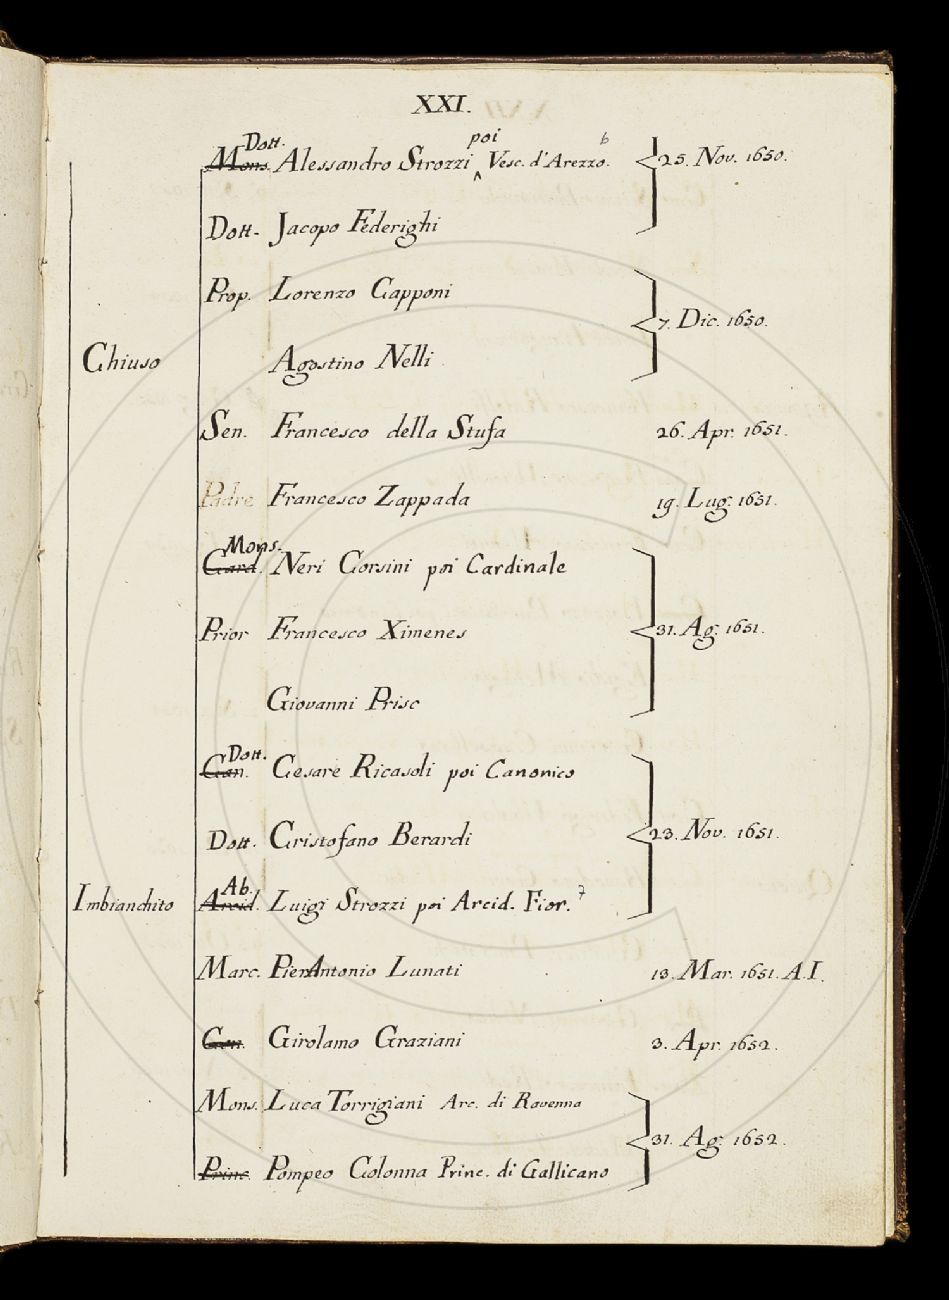 XXI.
Dott.
Mons. Alessandro Strozzi poi Vesc. d'Arezzo. 6 25. Nov. 1650.
Dott. Jacopo Federighi
Prop. Lorenzo Capponi
7. Dic. 1650.
Chiuso Agostino Nelli
Sen. Francesco della Stufa 26. Apr. 1651.
Padre Francesco Zappada 19. Lug. 1651.
Mons.
Card. Neri Corsini poi Cardinale
Prior Francesco Ximenes 31. Ag. 1651.
Giovanni Prisc
Dott.
Can. Cesare Ricasoli poi Canonico
Dott. Cristofano Berardi 23. Nov. 1651.
Ab.
Imbianchito Arcid. Luigi Strozzi poi Arcid. Fior. 7
Marc. PierAntonio Lunati 13. Mar. 1651. A.I.
Girolamo Graziani 3. Apr. 1652.
Mons. Luca Torrigiani Arc. di Ravenna
31. Ag. 1652.
Princ. Pompeo Colonna Princ. di Gallicano